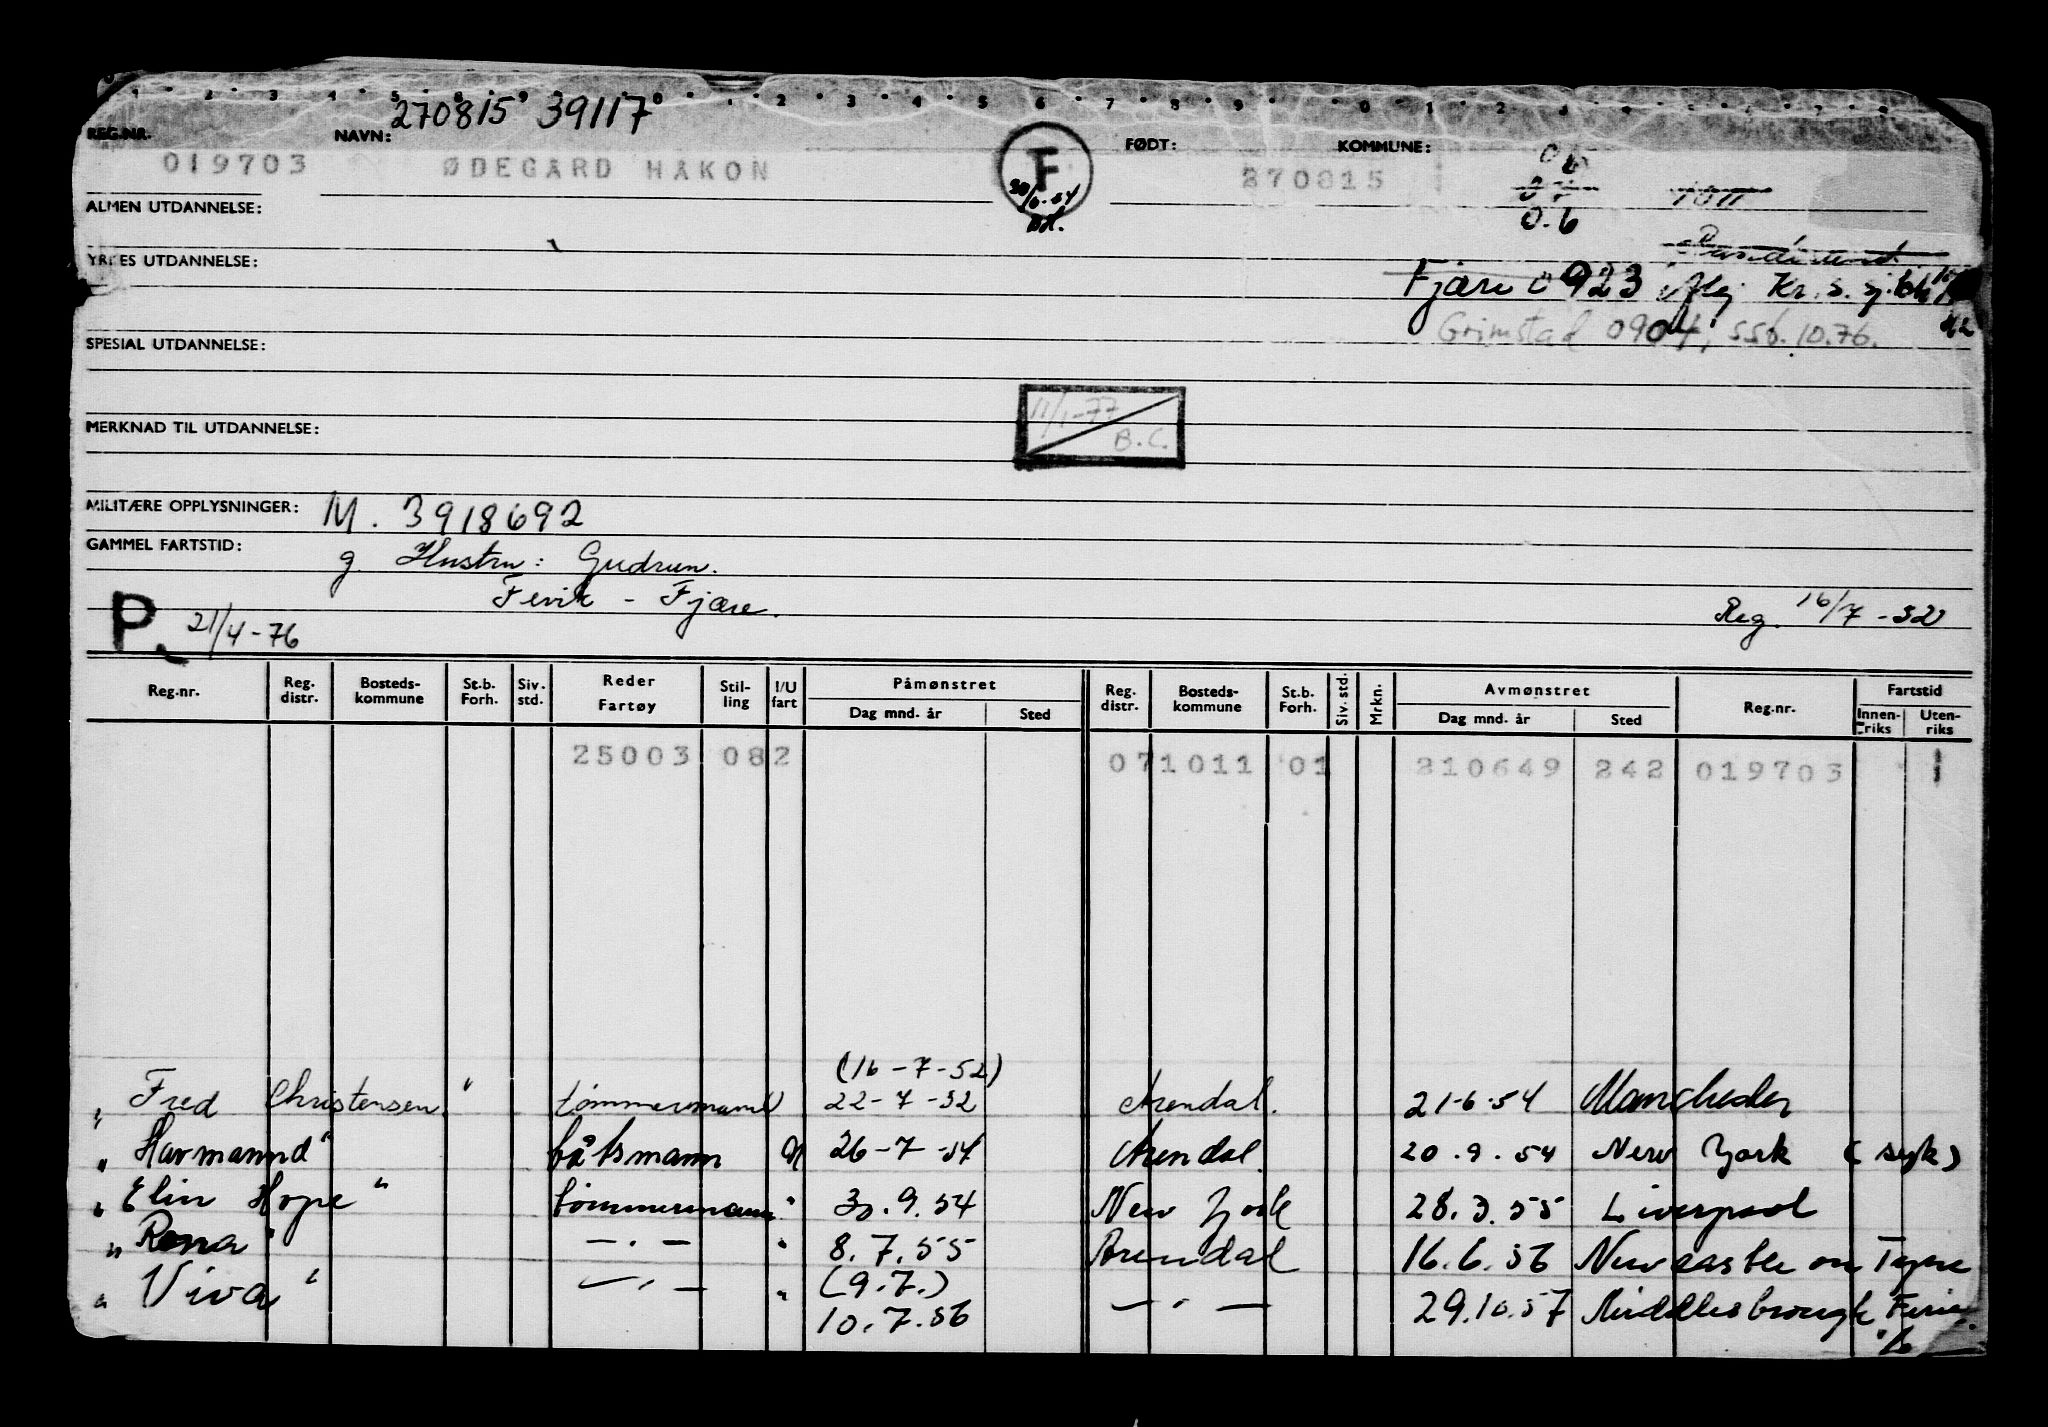 270815 39117
REG.NR. NAVN: FØDT: KOMMUNE:
019703 ØDEGÅRD HÅKON F 270815 06
30/6-54 07
0.6
ALMEN UTDANNELSE:
YRKES UTDANNELSE:
Fjære 0923 Kr. S.
Grimstad 0904, SSb. 10.76.
SPESIAL UTDANNELSE:
11/1-77
B.C.
MERKNAD TIL UTDANNELSE:
MILITÆRE OPPLYSNINGER: M. 3918692
GAMMEL FARTSTID:
g. Hustru: Gudrun.
Fevik - Fjære.
P. 21/4-76 Reg. 16/7-52
Reg.nr. Reg. distr. Bosteds-kommune St.b. Forh. Siv. std. Reder Fartøy Stil-ling I/U fart Påmønstret Dag mnd. år Sted Reg. distr. Bosteds-kommune St.b. Forh. Siv. std. Mrkn. Avmønstret Dag mnd. år Sted Reg.nr. Fartstid Innen-riks Uten-riks
25003 082 071011 01 210649 242 019703 1
(16-7-52)
" Fred Christensen " tømmermann U 22-7-52 Arendal. 21.6.54 Manchester
" Havmannd " båtsmann U 26-7-54 Arendal. 20.9.54 New York (syk)
" Elin Hope " tømmermann " 30.9.54 New York 28.3.55 Liverpool
" Rona " -.- " 8.7.55 Arendal 16.6.56 Newcastle on Tyne
" Viva " -.- " (9.7.)
10.7.56 -"- 29.10.57 Middlesbrough Ferie.